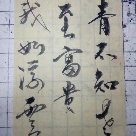 青不知是
至富貴
我如浮雲